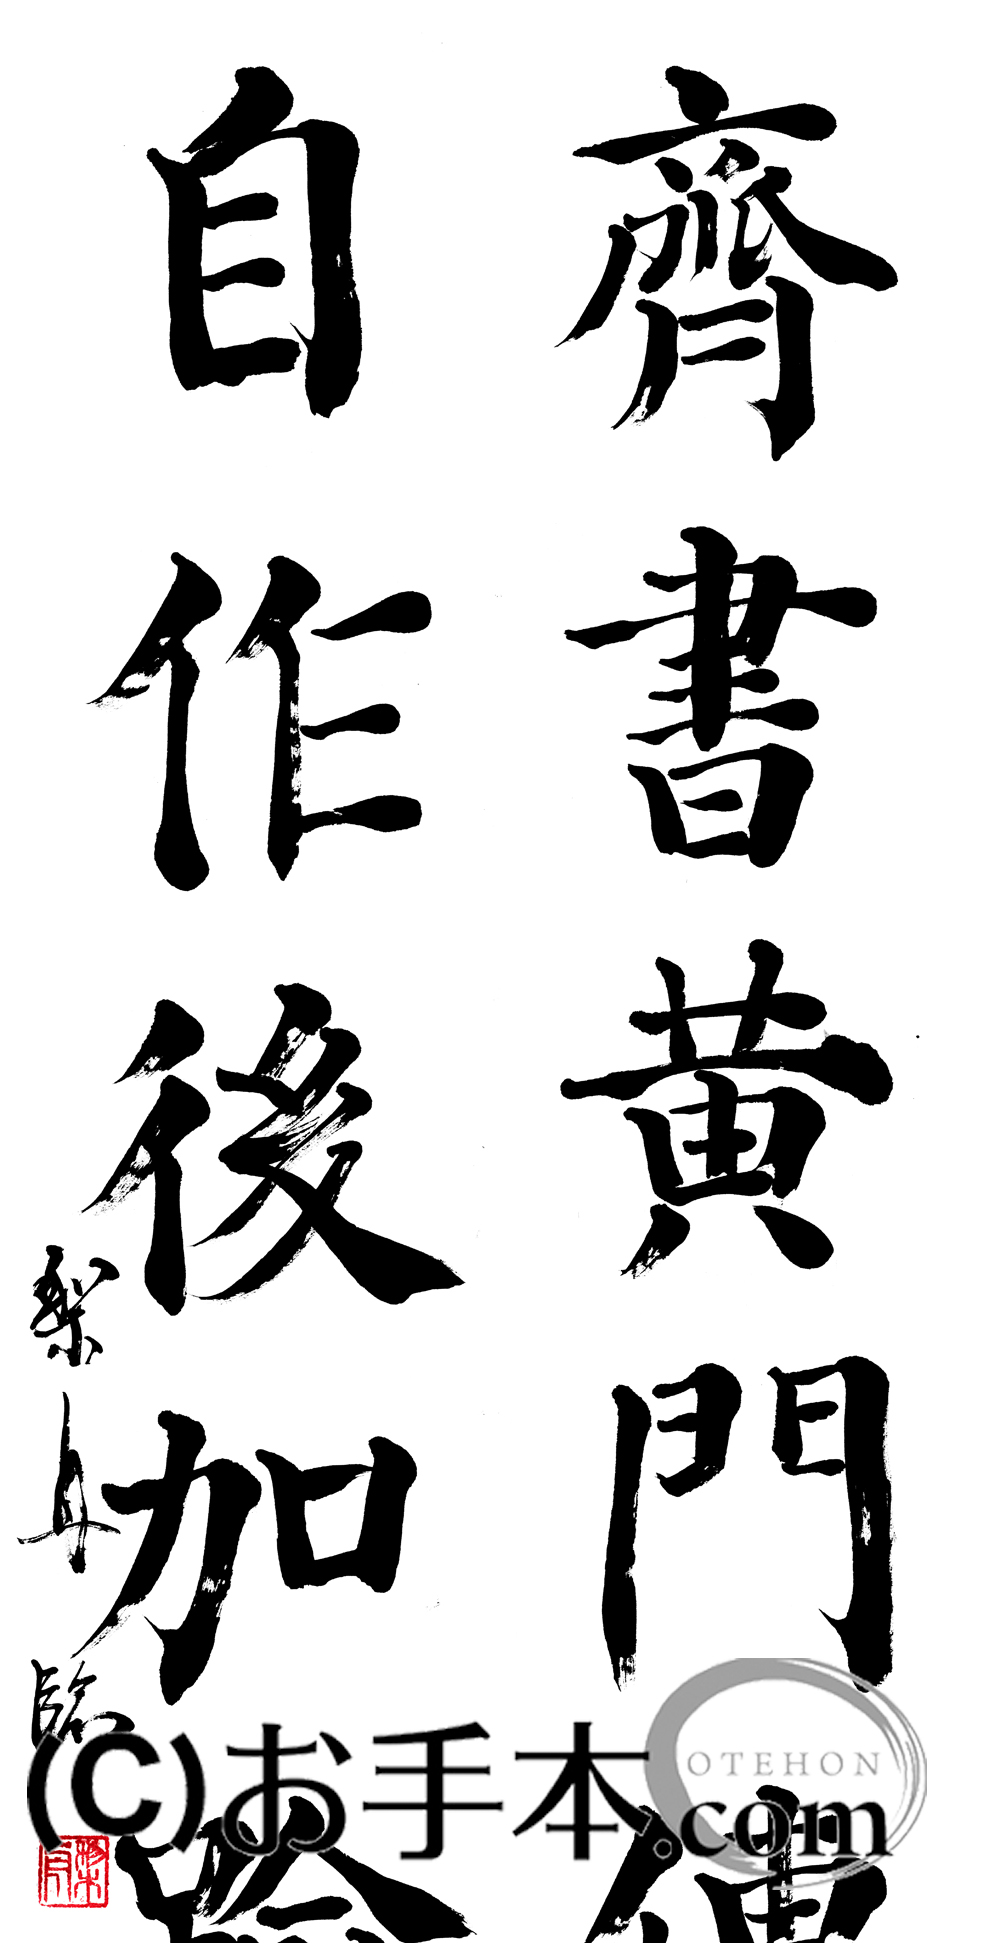 齊書黄門
自作後加
臨
(C)お手本.com
OTEHON